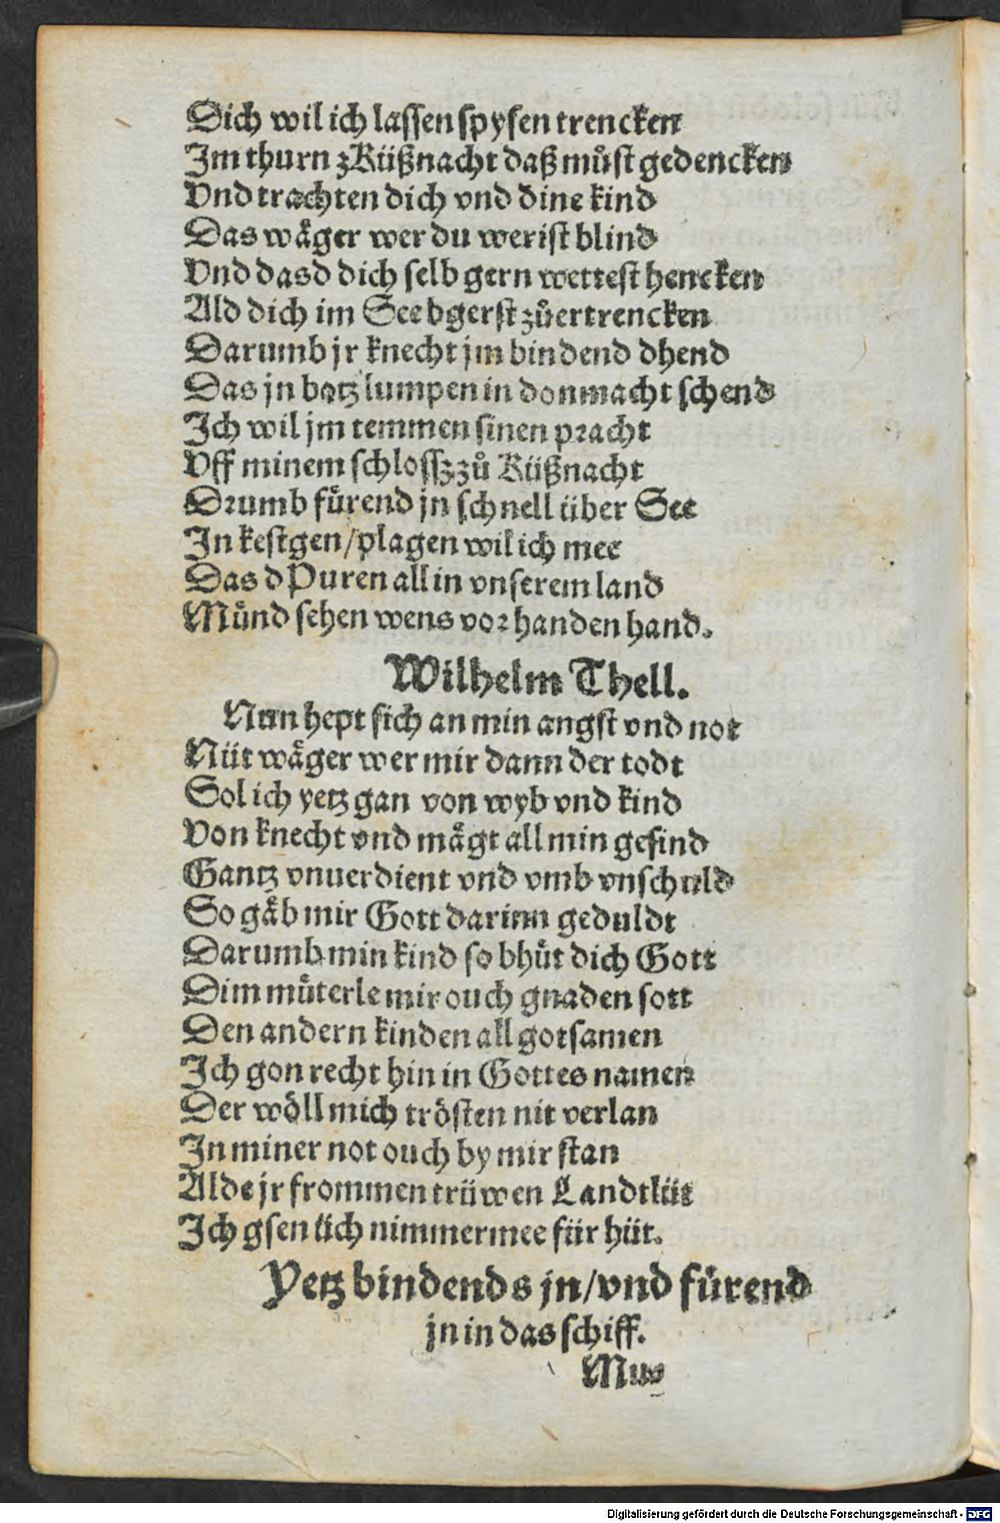 Dich wil ich lassen spysen trencken
Im thurn zKüßnacht daß můst gedencken
Vnd trachten dich vnd dine kind
Das wåger wer du werist blind
Vnd dasd dich selb gern wettest hencken
Ald dich im See bgerst zůertrencken
Darumb jr knecht jm bindend dhend
Das jn botz lumpen in donmacht schend
Ich wil jm temmen sinen pracht
Vff minem schlossz zů Küßnacht
Drumb fůrend jn schnell über See
In kestgen/plagen wil ich mee
Das dPuren all in vnserem land
Můnd sehen wens vorhanden hand.
Wilhelm Thell.
Nun hept sich an min angst vnd not
Nüt wåger wer mir dann der todt
Sol ich yetz gan von wyb vnd kind
Von knecht vnd mågt all min gesind
Gantz vnuerdient vnd vmb vnschuld
So gåb mir Gott darinn geduldt
Darumb min kind so bhůt dich Gott
Dim můterle mir ouch gnaden sott
Den andern kinden all gotsamen
Ich gon recht hin in Gottes namen
Der wöll mich trösten nit verlan
In miner not ouch by mir stan
Alde jr frommen trüwen Landtlüt
Ich gsen üch nimmermee für hüt.
Yetz bindends jn/vnd fůrend
jn in das schiff.
Mus
Digitalisierung gefördert durch die Deutsche Forschungsgemeinschaft - DFG